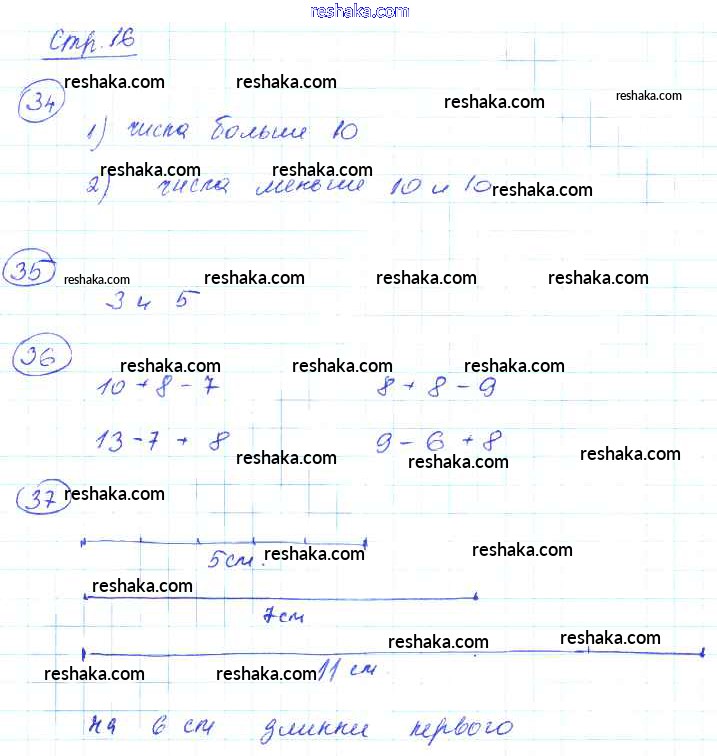 reshaka.com
Стр. 16
reshaka.com reshaka.com reshaka.com reshaka.com
34
1) числа больше 10
reshaka.com reshaka.com
2) числа меньше 10 и 10 reshaka.com
35
reshaka.com reshaka.com reshaka.com reshaka.com
3 и 5
36
reshaka.com reshaka.com reshaka.com
10 + 8 - 7 8 + 8 - 9
13 - 7 + 8 9 - 6 + 8
reshaka.com reshaka.com reshaka.com
37 reshaka.com
5 см. reshaka.com reshaka.com
reshaka.com
7 см
reshaka.com reshaka.com
reshaka.com reshaka.com 11 см
на 6 см длинне первого